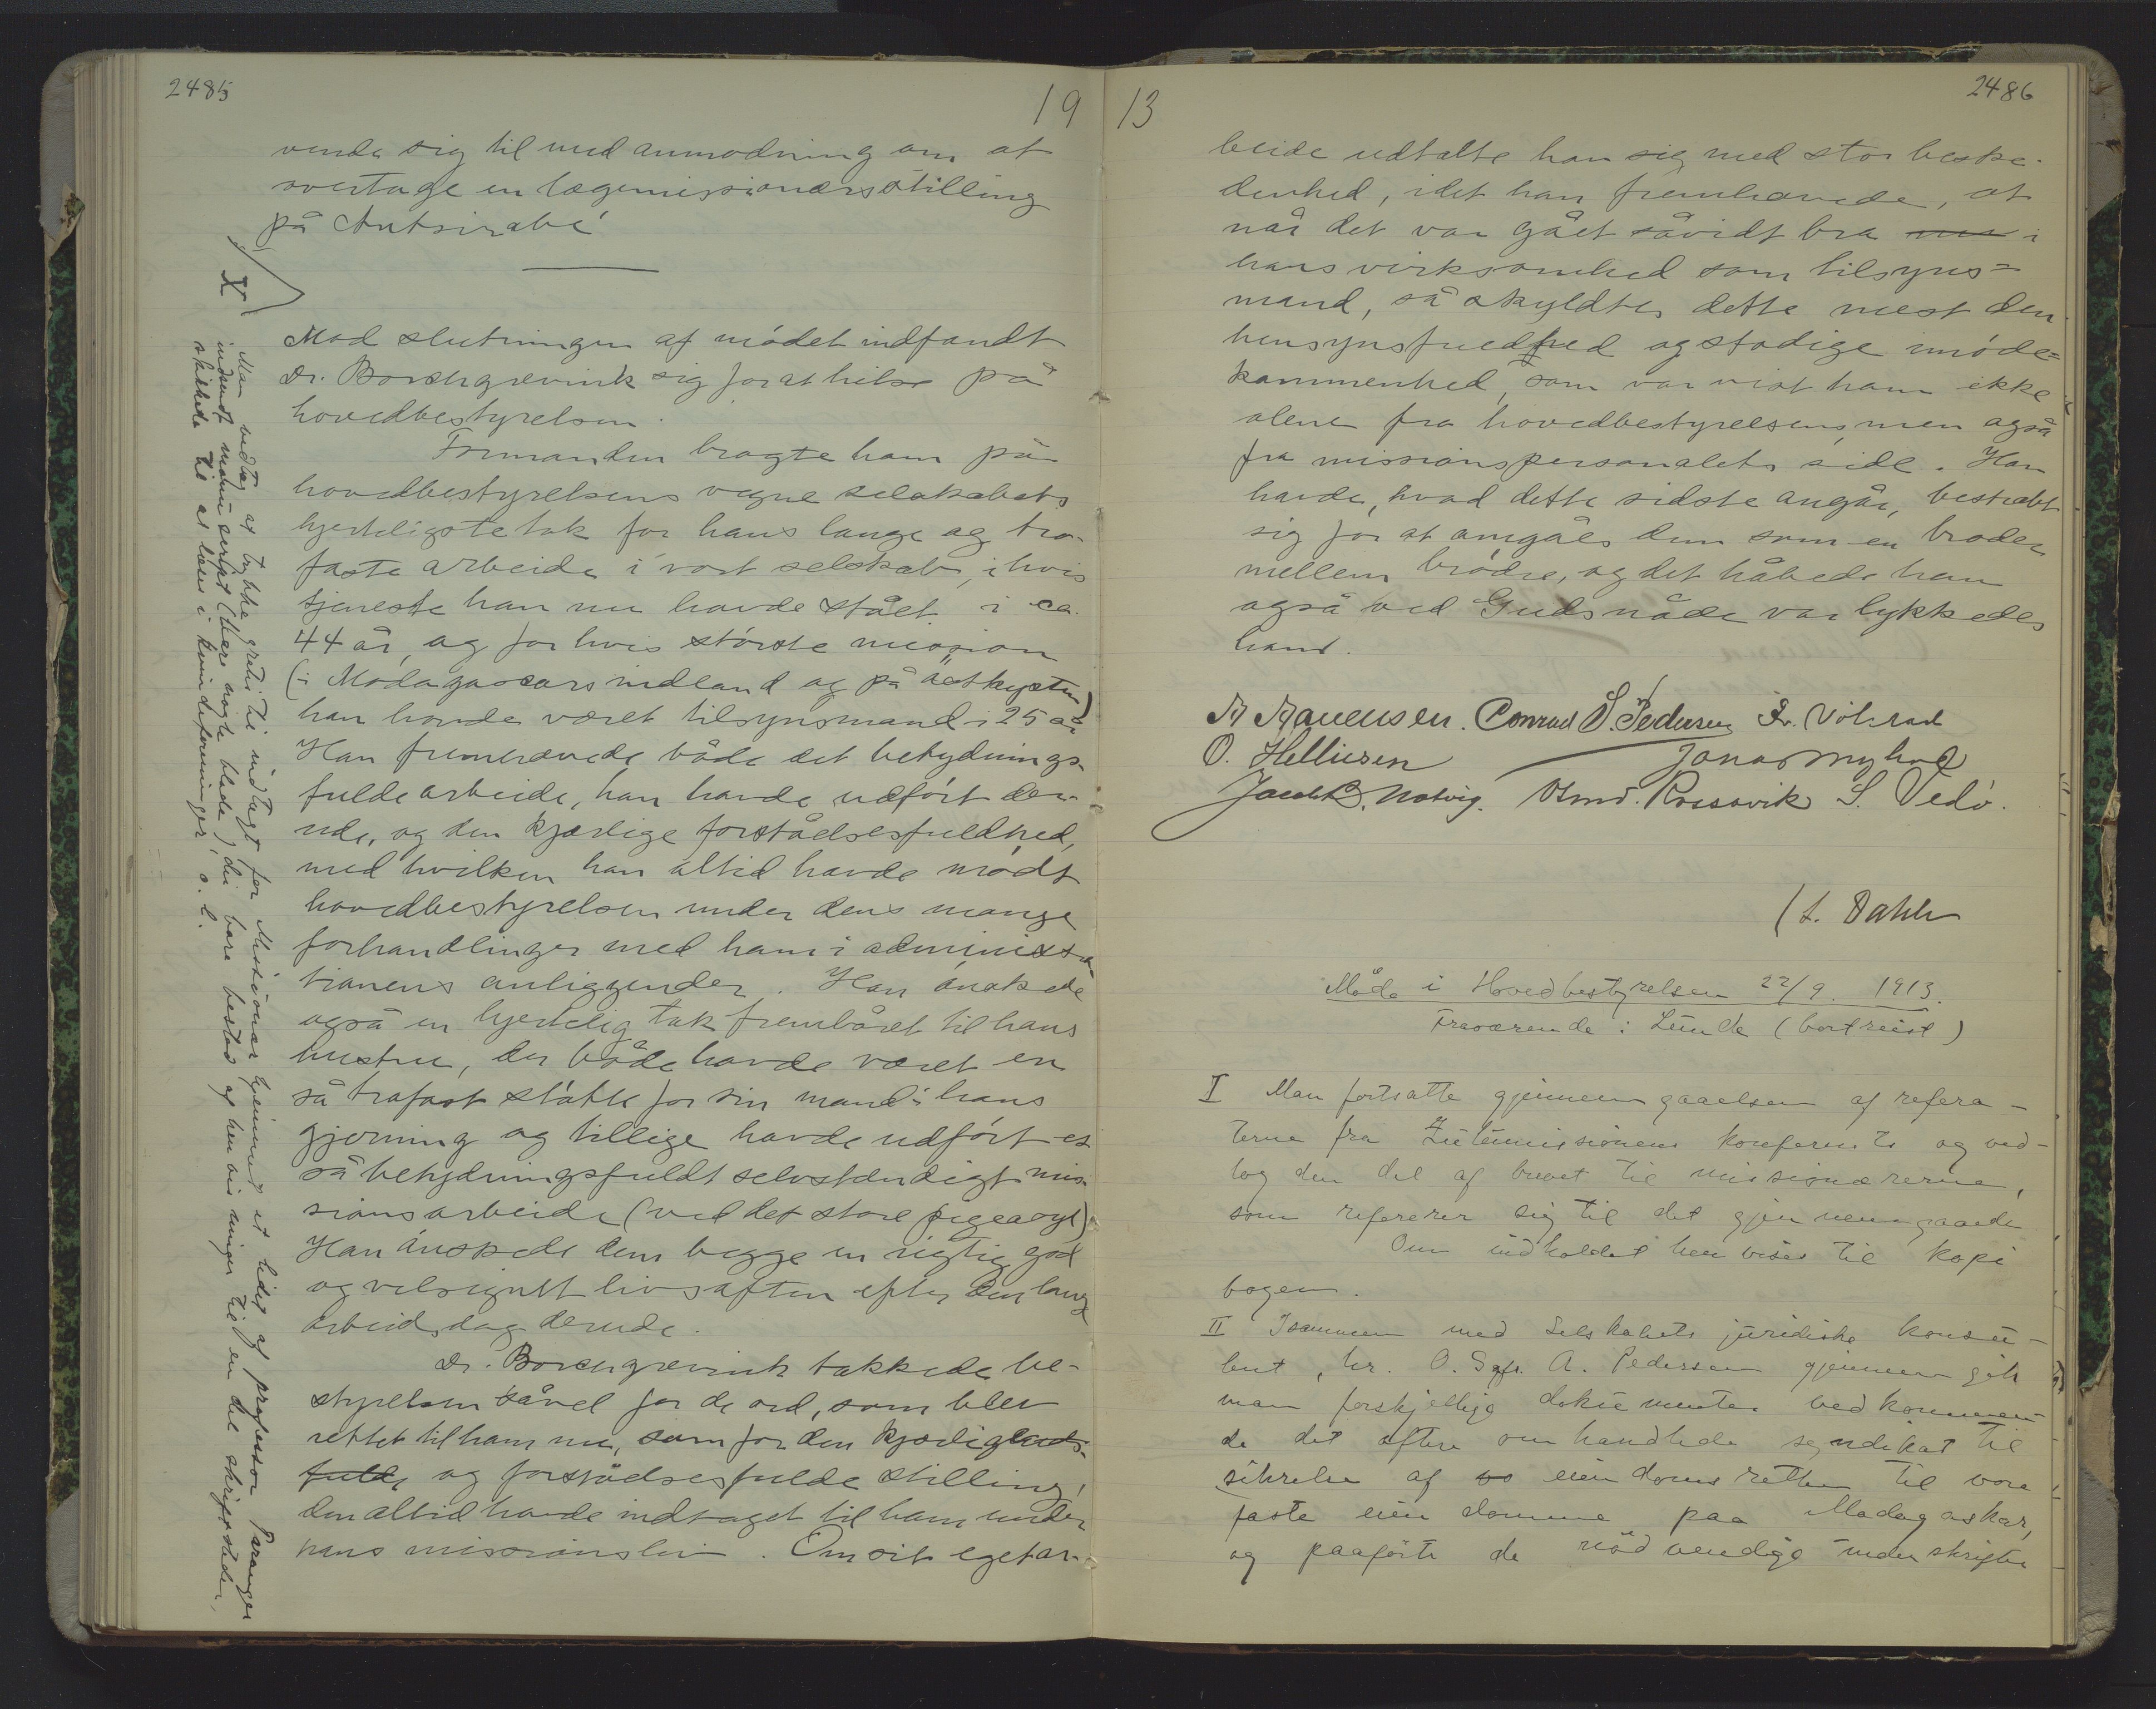 2485
19
vende sig til med anmodning om at
overtage en lægemissionærsstilling
på Antsirabé
X
Mod slutningen af mødet indfandt
Dr. Borchgrevink sig for at hilse på
hovedbestyrelsen.
Formanden bragte ham på
hovedbestyrelsens vegne selskabets
hjerteligste tak for hans lange og tro-
faste arbeide i vort selskab, i hvis
tjeneste han nu havde stået i ca.
44 år, og for hvis største mission
(i Madagascars indland og på østkysten)
han havde været tilsynsmand i 25 år
Han fremhævede både det betydnings-
fulde arbeide, han havde udført der-
ude, og den kjærlige forståelsesfuldhed,
med hvilken han altid havde mødt
hovedbestyrelsen under dens mange
forhandlinger med ham i administra-
tionens anliggender. Han ønskede
også en hjertelig tak frembåret til hans
hustru, der både havde været en
så trofast støtte for sin mand i hans
gjerning og tillige havde udført et
så betydningsfuldt selvstændigt mis-
sionsarbeide (ved det store pigeasyl)
Han ønskede dem begge en rigtig god
og velsignet livsaften efter den lange
arbeidsdag derude.
Dr. Borchgrevink takkede be-
styrelsen såvel for de ord, som blev
rettet til ham nu, som for den kjærligheds-
fulde og forståelsesfulde stilling,
den altid havde indtaget til ham under
hans missionsliv. Om sit eget ar-
Man vedtog at trykke gratis til indtægt for Missionær hjemmet et lidet af professor Paranger
indsendt manuscript (flere vigte blade), der bare bestod af henvisninger til en del skriftsteder,
skikkede til at læses i kvindeforeninger o. l.
2486
13
beide udtalte han sig med stor beske-
denhed, idet han fremhævede, at
når det var gået såvidt bra i
hans virksomhed som tilsyns=
mand, så skyldtes dette mest den
hensynsfuldhed og stadige imøde=
kommenhed, som var vist ham ikke
alene fra hovedbestyrelsens, men også
fra missionspersonalets side. Han
havde, hvad dette sidste angår, bestræbt
sig for at omgåes dem som en broder
mellem brødre, og det håbede han
også ved Guds nåde var lykkedes
ham.
Conrad S. Pedersen
O. Helliesen Jonas Myhre
Jacob B. Natvig. Åsmd. Rossavik S. Vedø.
L. Dahle
Møde i Hovedbestyrelsen 22/9. 1913.
Fraværende: Lunde (bortreist)
I Man fortsatte gjennemgaaelsen af refera-
terne fra Zulumissionens konferents og ved-
tog den del af brevet til missionærerne,
som refererer sig til det gjennemgaaede
Om indholdet henvises til kopi
bogen.
II Isammen med Selskabets juridiske konsu-
lent, hr. O. Sgfr. A. Pedersen gjennemgik
man forskjellige dokumenter vedkommen-
de det oftere omhandlede syndikat til
sikrelse af eiendomsretten til vore
faste eiendomme paa Madagaskar,
og paaførte de nödvendige underskrifter